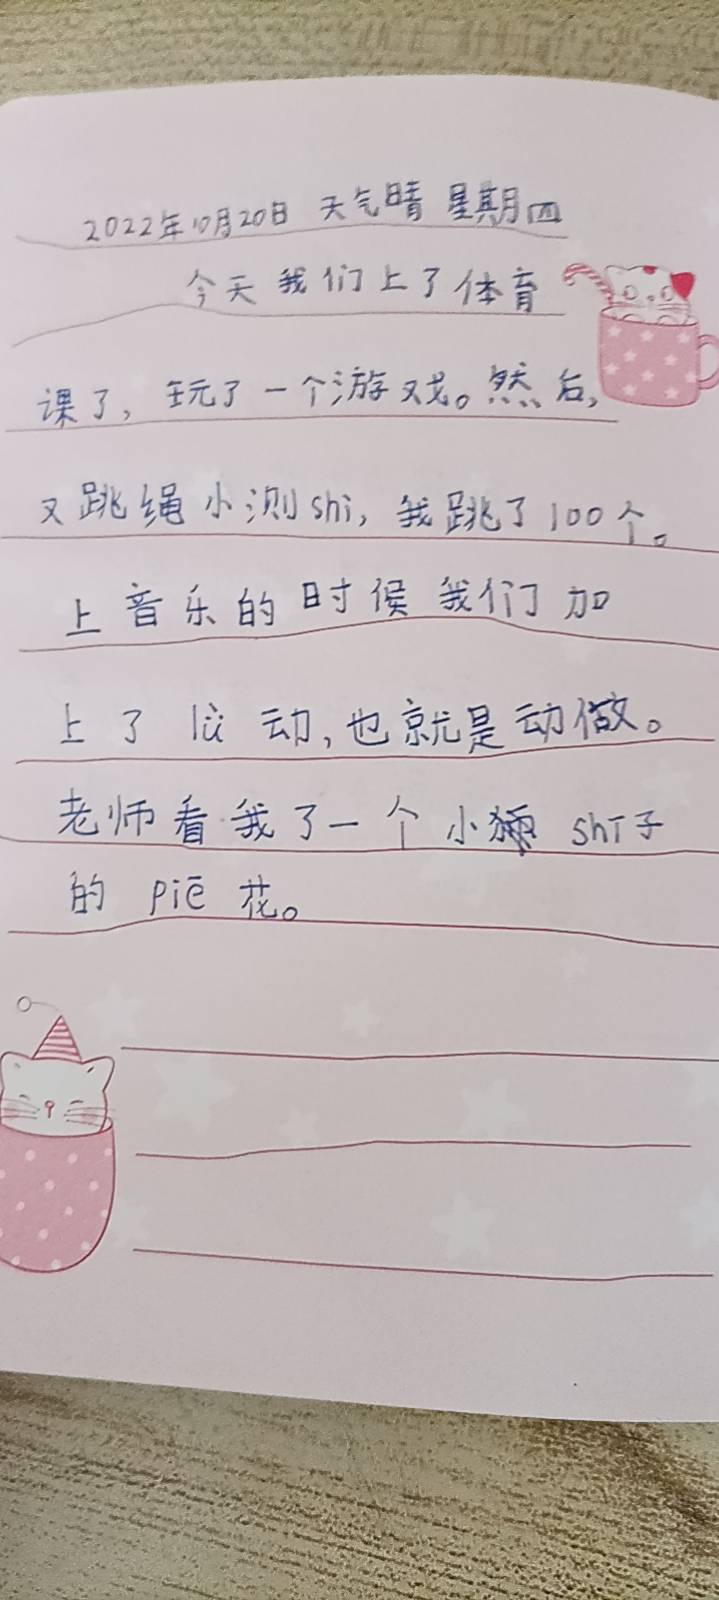 2022年10月20日 天气晴 星期四
今天我们上了体育
课了，玩了一个游戏。然后，
又跳绳小测shi，我跳了100个。
上音乐的时候我们加
上了 lǜ 动，也就是动做。
老师看我了一个小 shī子
的 piē 花。